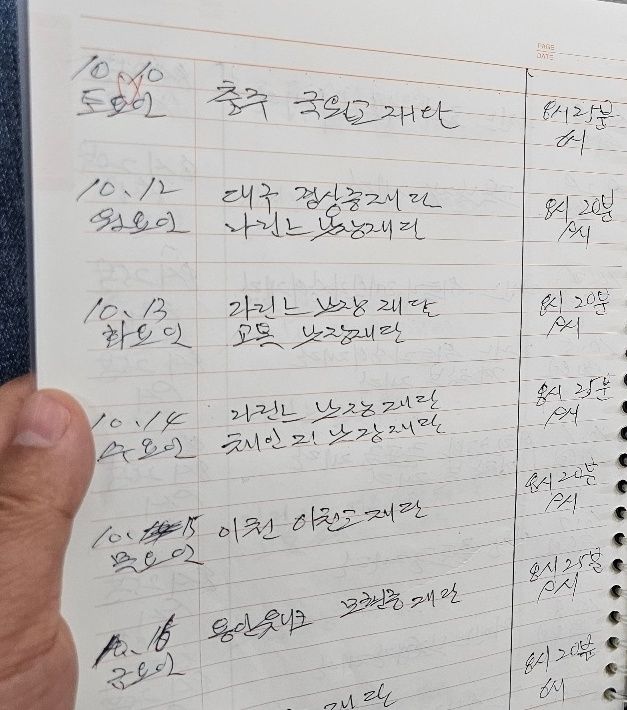 PAGE
DATE
10. 10
토요일
충주 국원고 재단
8시 25분
6시
10. 12
월요일
대구 경상중 재단
라린느 낮장 재단
8시 20분
6시
10. 13
화요일
라린느 낮장 재단
교복 낮장재단
8시 20분
6시
10. 14
수요일
라린느 낮장 재단
낮장재단
8시 25분
6시
10. 15
목요일
이천 이천고 재단
8시 20분
6시
10. 16
금요일
재단
8시 25분
6시
재단
8시 20분
6시